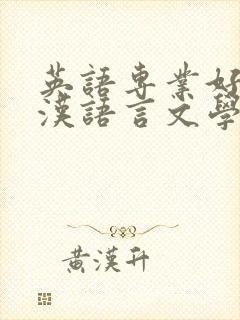 英語專業好
漢語言文學
黃漢升